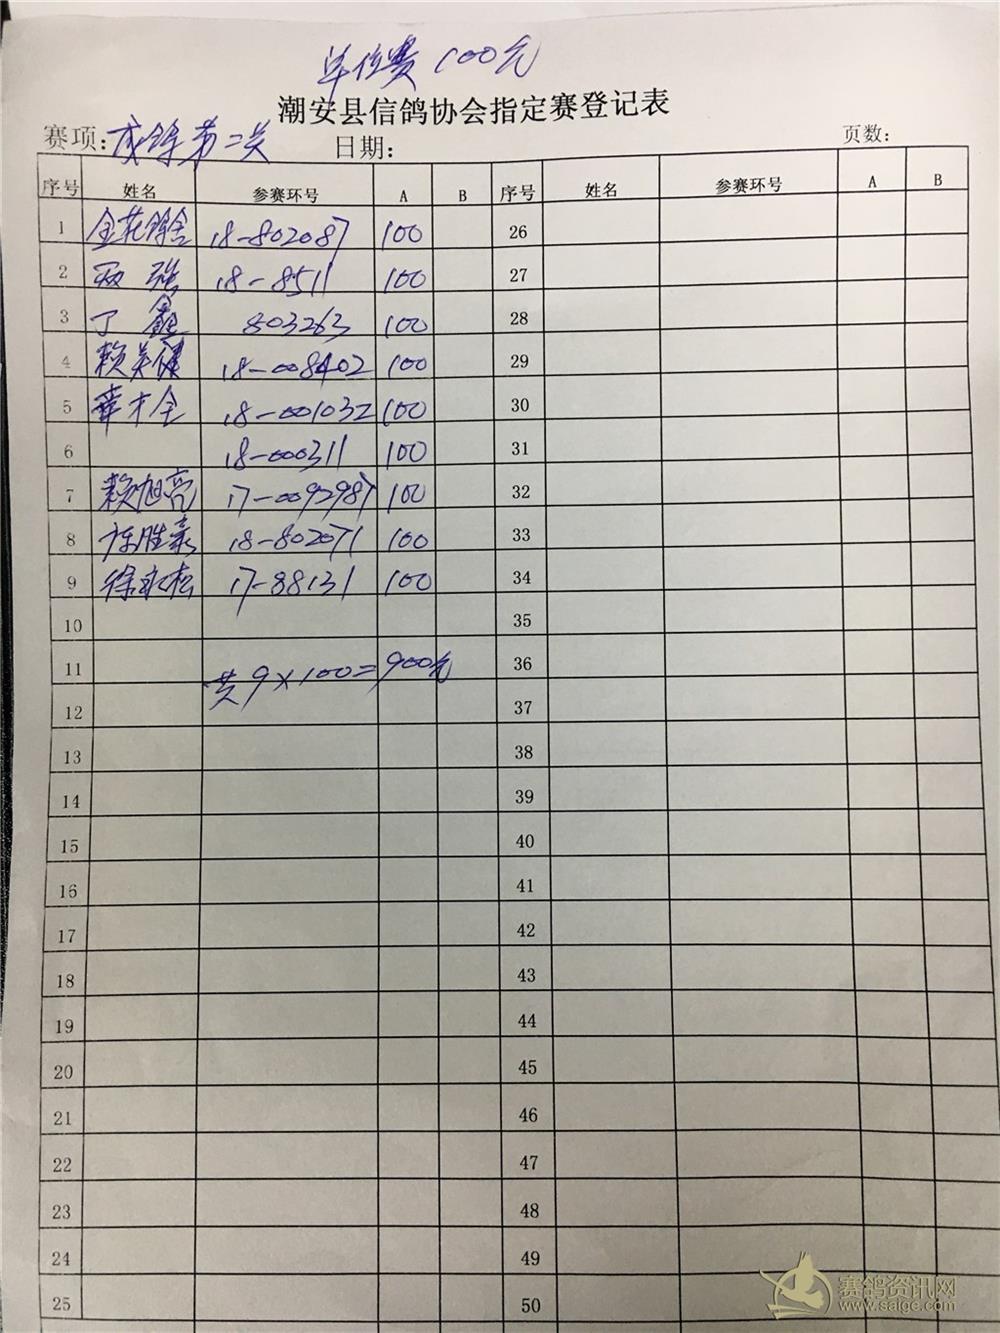 单位赛 100元
潮安县信鸽协会指定赛登记表
赛项: 成鸽第二关 日期: 页数:
序号 姓名 参赛环号 A B 序号 姓名 参赛环号 A B
1 金花鸽舍 18-802087 100 26
2 双强 18-8511 100 27
3 丁鑫 803263 100 28
4 赖英健 18-008402 100 29
5 章才全 18-001032 100 30
6 18-000311 100 31
7 赖旭亮 17-0092987 100 32
8 陈胜豪 18-802071 100 33
9 徐永松 17-88131 100 34
10 35
11 共9×100=900元 36
12 37
13 38
14 39
15 40
16 41
17 42
18 43
19 44
20 45
21 46
22 47
23 48
24 49
25 50
赛鸽资讯网
www.saige.com